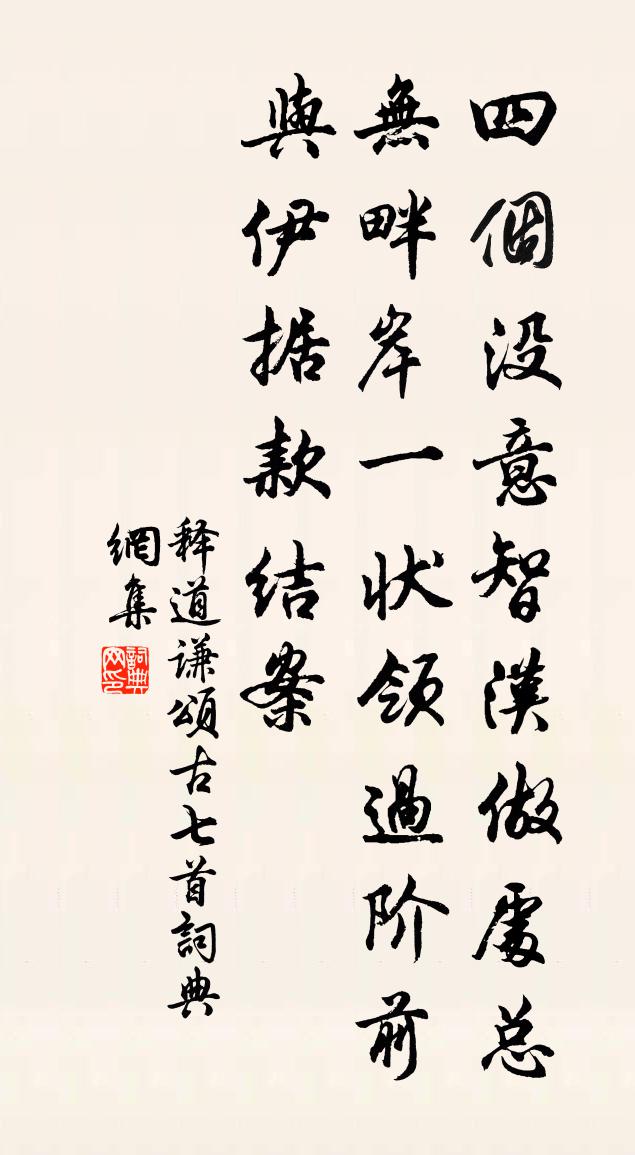 四個没意智漢做處总
無畔岸一状领過阶前
與伊据款结案
释道谦頌古七首詞典
網集
詞典网印